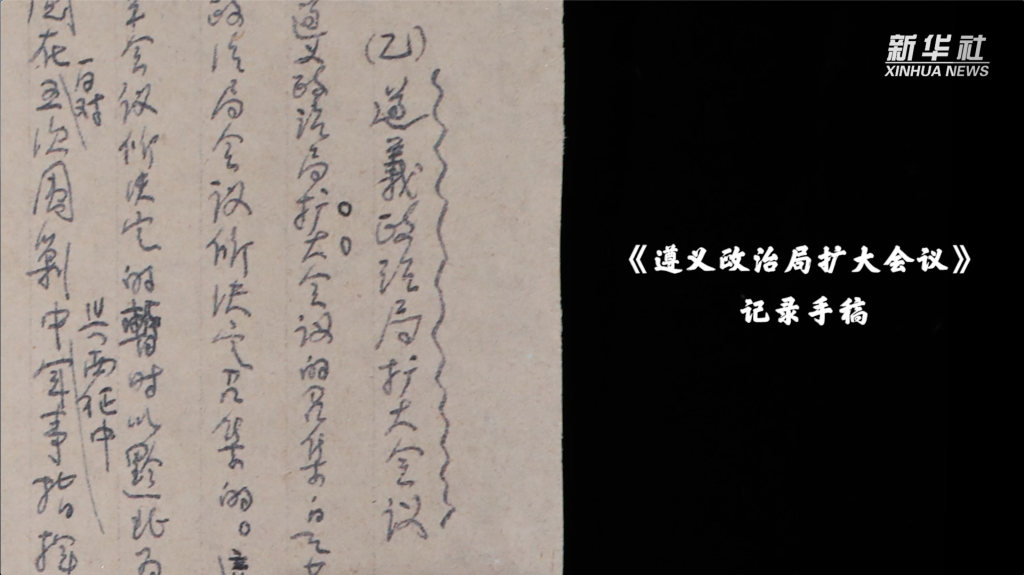 新华社
XINHUA NEWS
(乙)遵義政治局扩大会议
遵义政治局扩大会议的召集
政治局会议所决定召集的。
会议所决定的暂时以黔北为
与西征中
在五次围剿中军事指揮
《遵义政治局扩大会议》
记录手稿